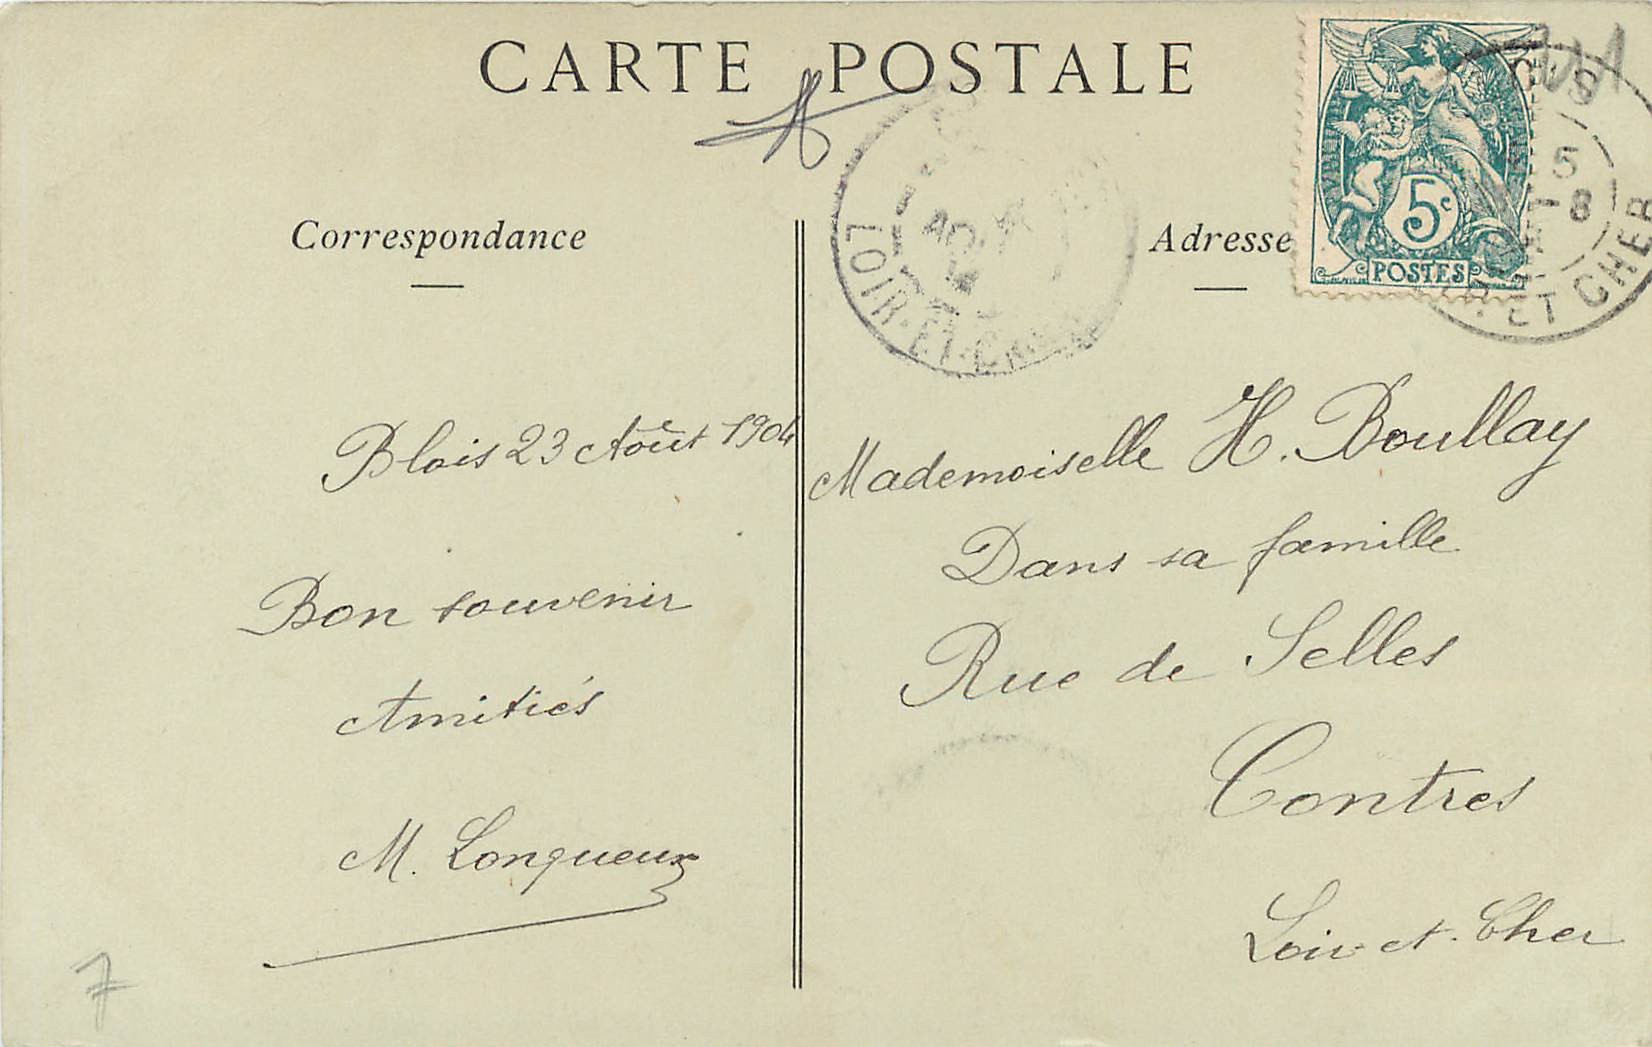 CARTE POSTALE
Correspondance
Adresse
5c
POSTES
5
8
ET CHER
LOIR-ET-CHER
Blois 23 Août 1904
Bon souvenir
Amitiés
M. Longueux
Mademoiselle H. Boullay
Dans sa famille
Rue de Selles
Contres
Loir-et-Cher
7